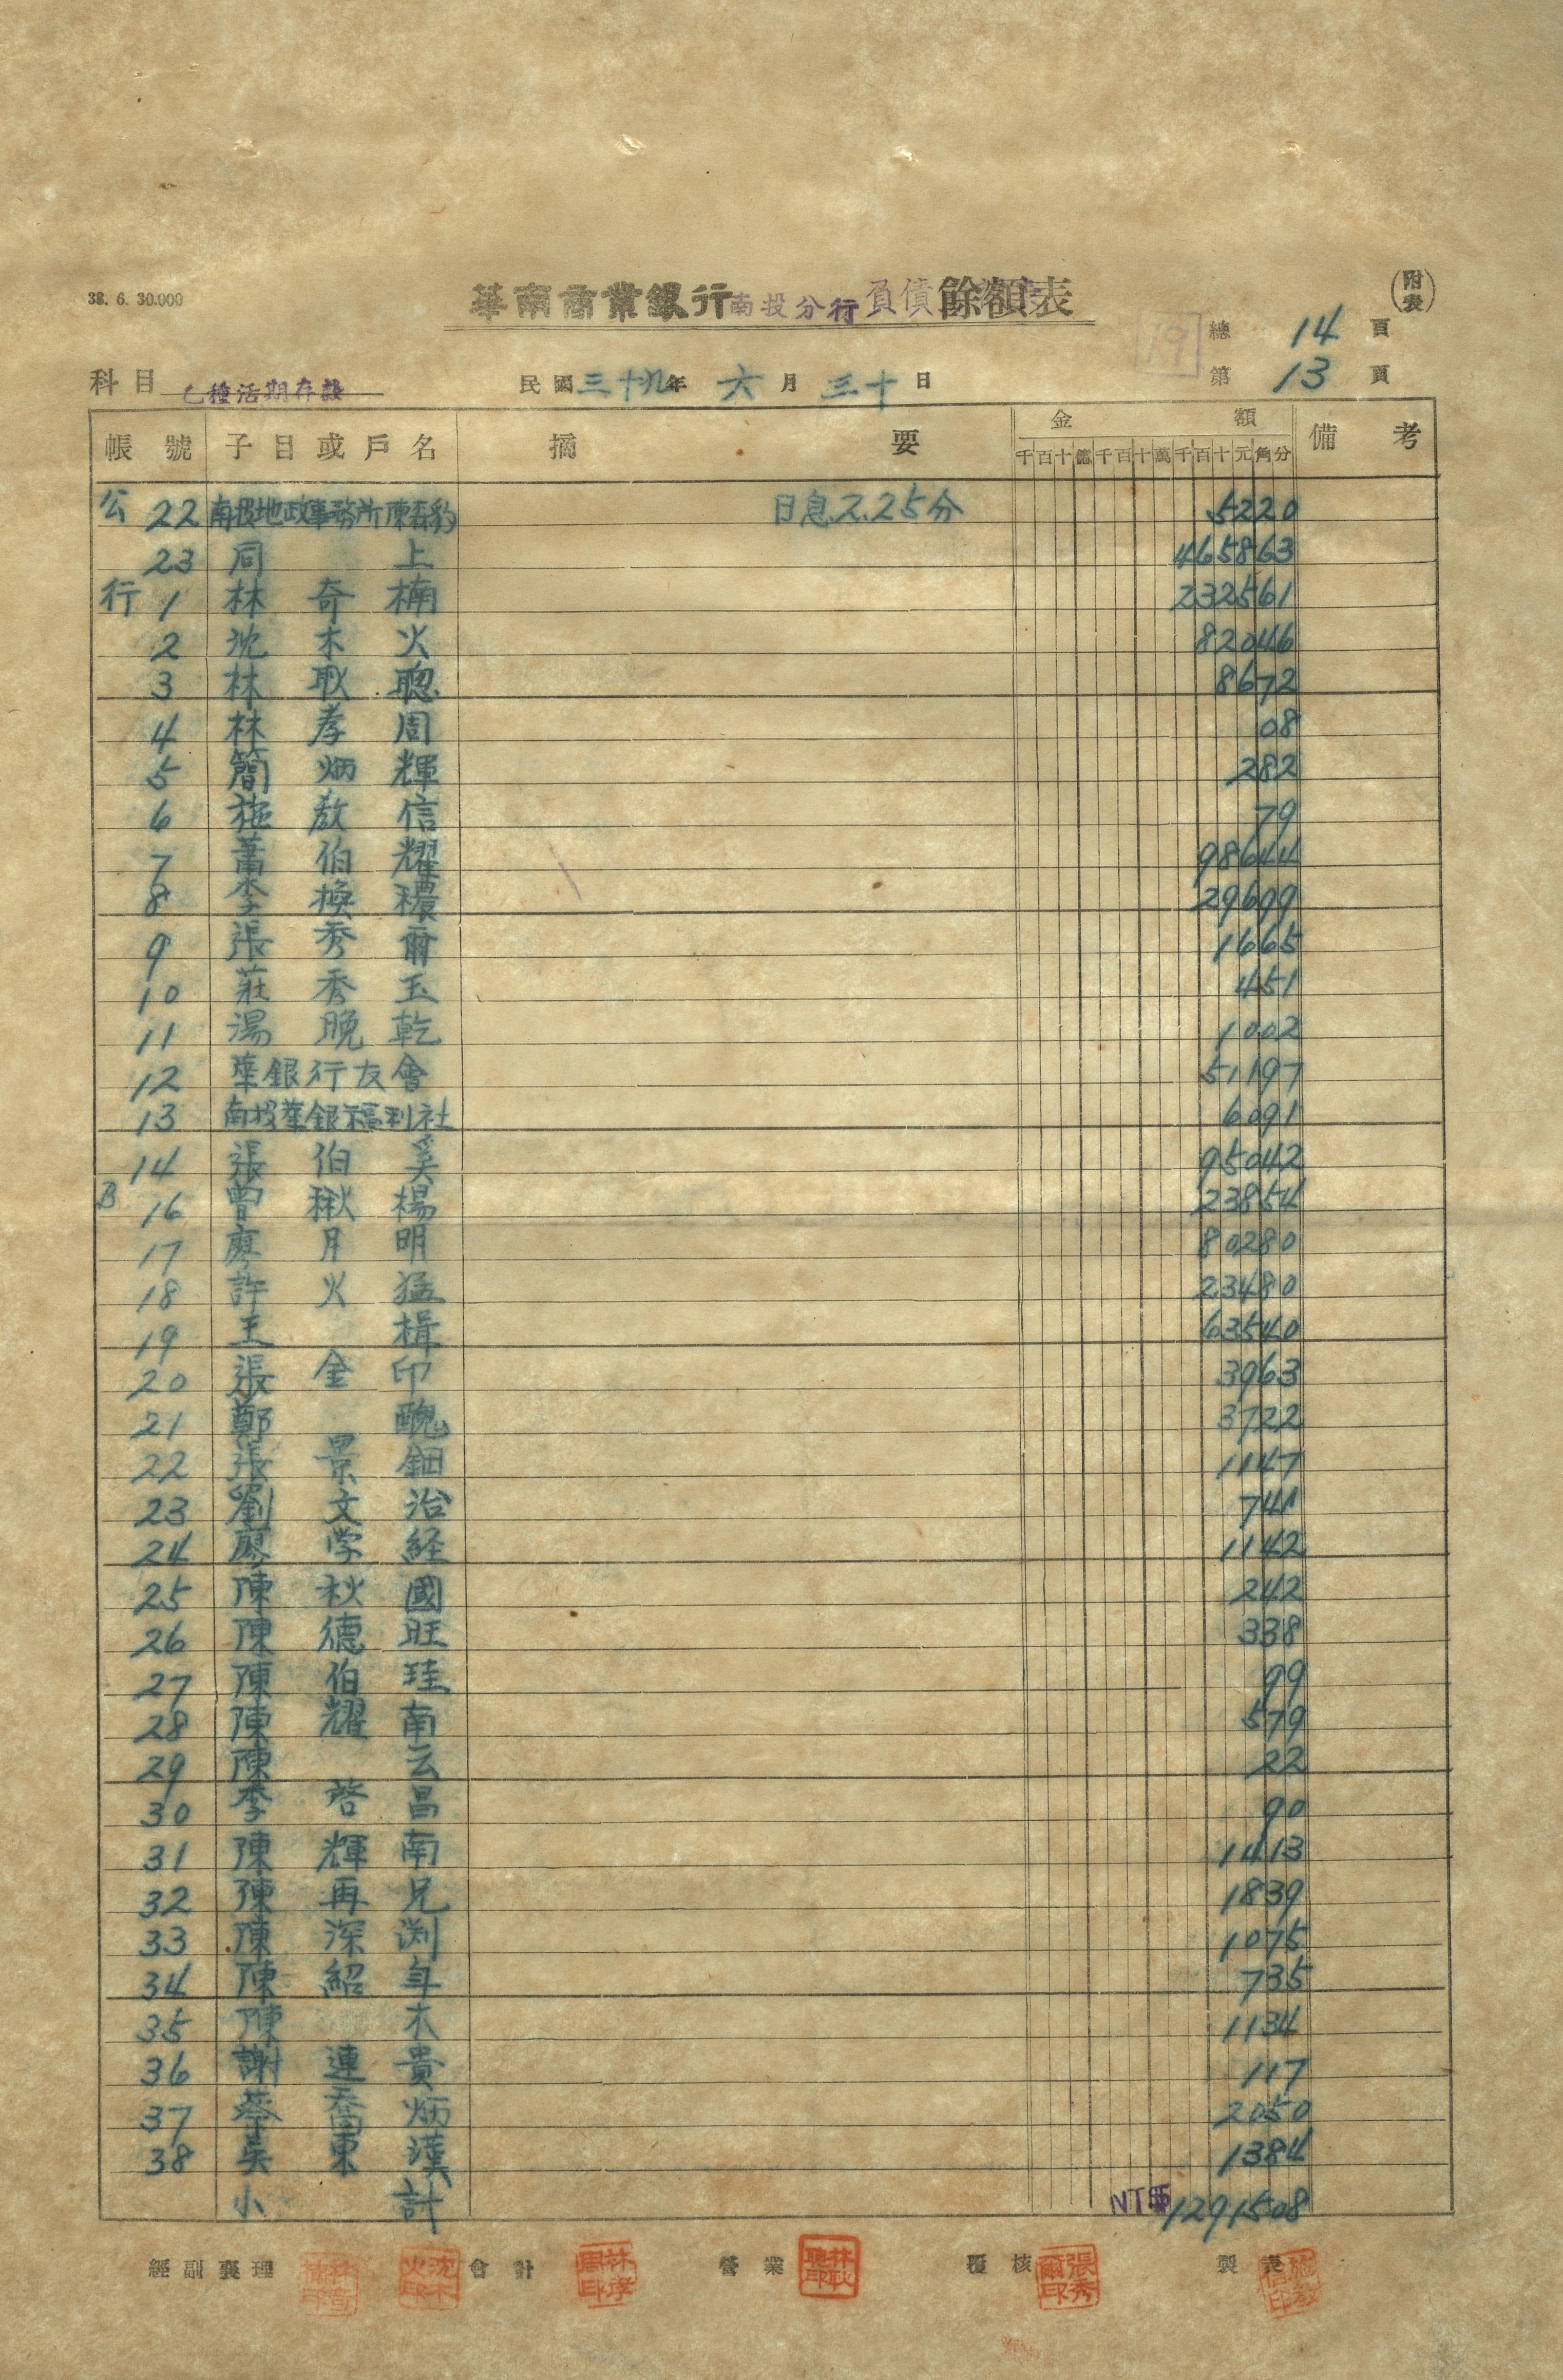 38. 6. 30.000
華南商業銀行南投分行負債餘額表
(附表)
19
總 14 頁
科目 乙種活期存款 民國三十九年六月三十日 第 13 頁
帳號 子目或戶名 摘要 金額 備考
千百十億千百十萬千百十元角分
公 22 南投地政事務所陳 日息2.25分 5220
23 同上 465863
行 1 林奇楠 232561
2 沈木火 82046
3 林耿聰 8672
4 林孝周 08
5 簡炳輝 282
6 施教信 79
7 蕭伯耀 98644
8 李換穠 29699
9 張秀爾 1665
10 莊秀玉 451
11 湯晚乾 1002
12 華銀行友會 51197
13 南投華銀福利社 6091
14 張伯奚 95042
B 16 曾楊 23854
17 廖月明 80280
18 許火猛 23480
19 王楫 63540
20 張金印 3963
21 鄭醜 3722
22 張景鈿 1147
23 劉文治 741
24 廖学経 1142
25 陳秋國 242
26 陳德旺 338
27 陳伯珪 99
28 陳耀南 579
29 陳云 22
30 李啓昌 90
31 陳輝南 1413
32 陳再兄 1839
33 陳深渕 1075
34 陳紹年 735
35 陳木 1134
36 謝連貴 117
37 蔡喬炳 2050
38 吳東漢 1384
小計 NT$ 1291508
經副襄理 林奇楠印 沈木火印 會計 林孝周印 營業 林耿聰印 覆核 張秀爾印 製表 施教信印